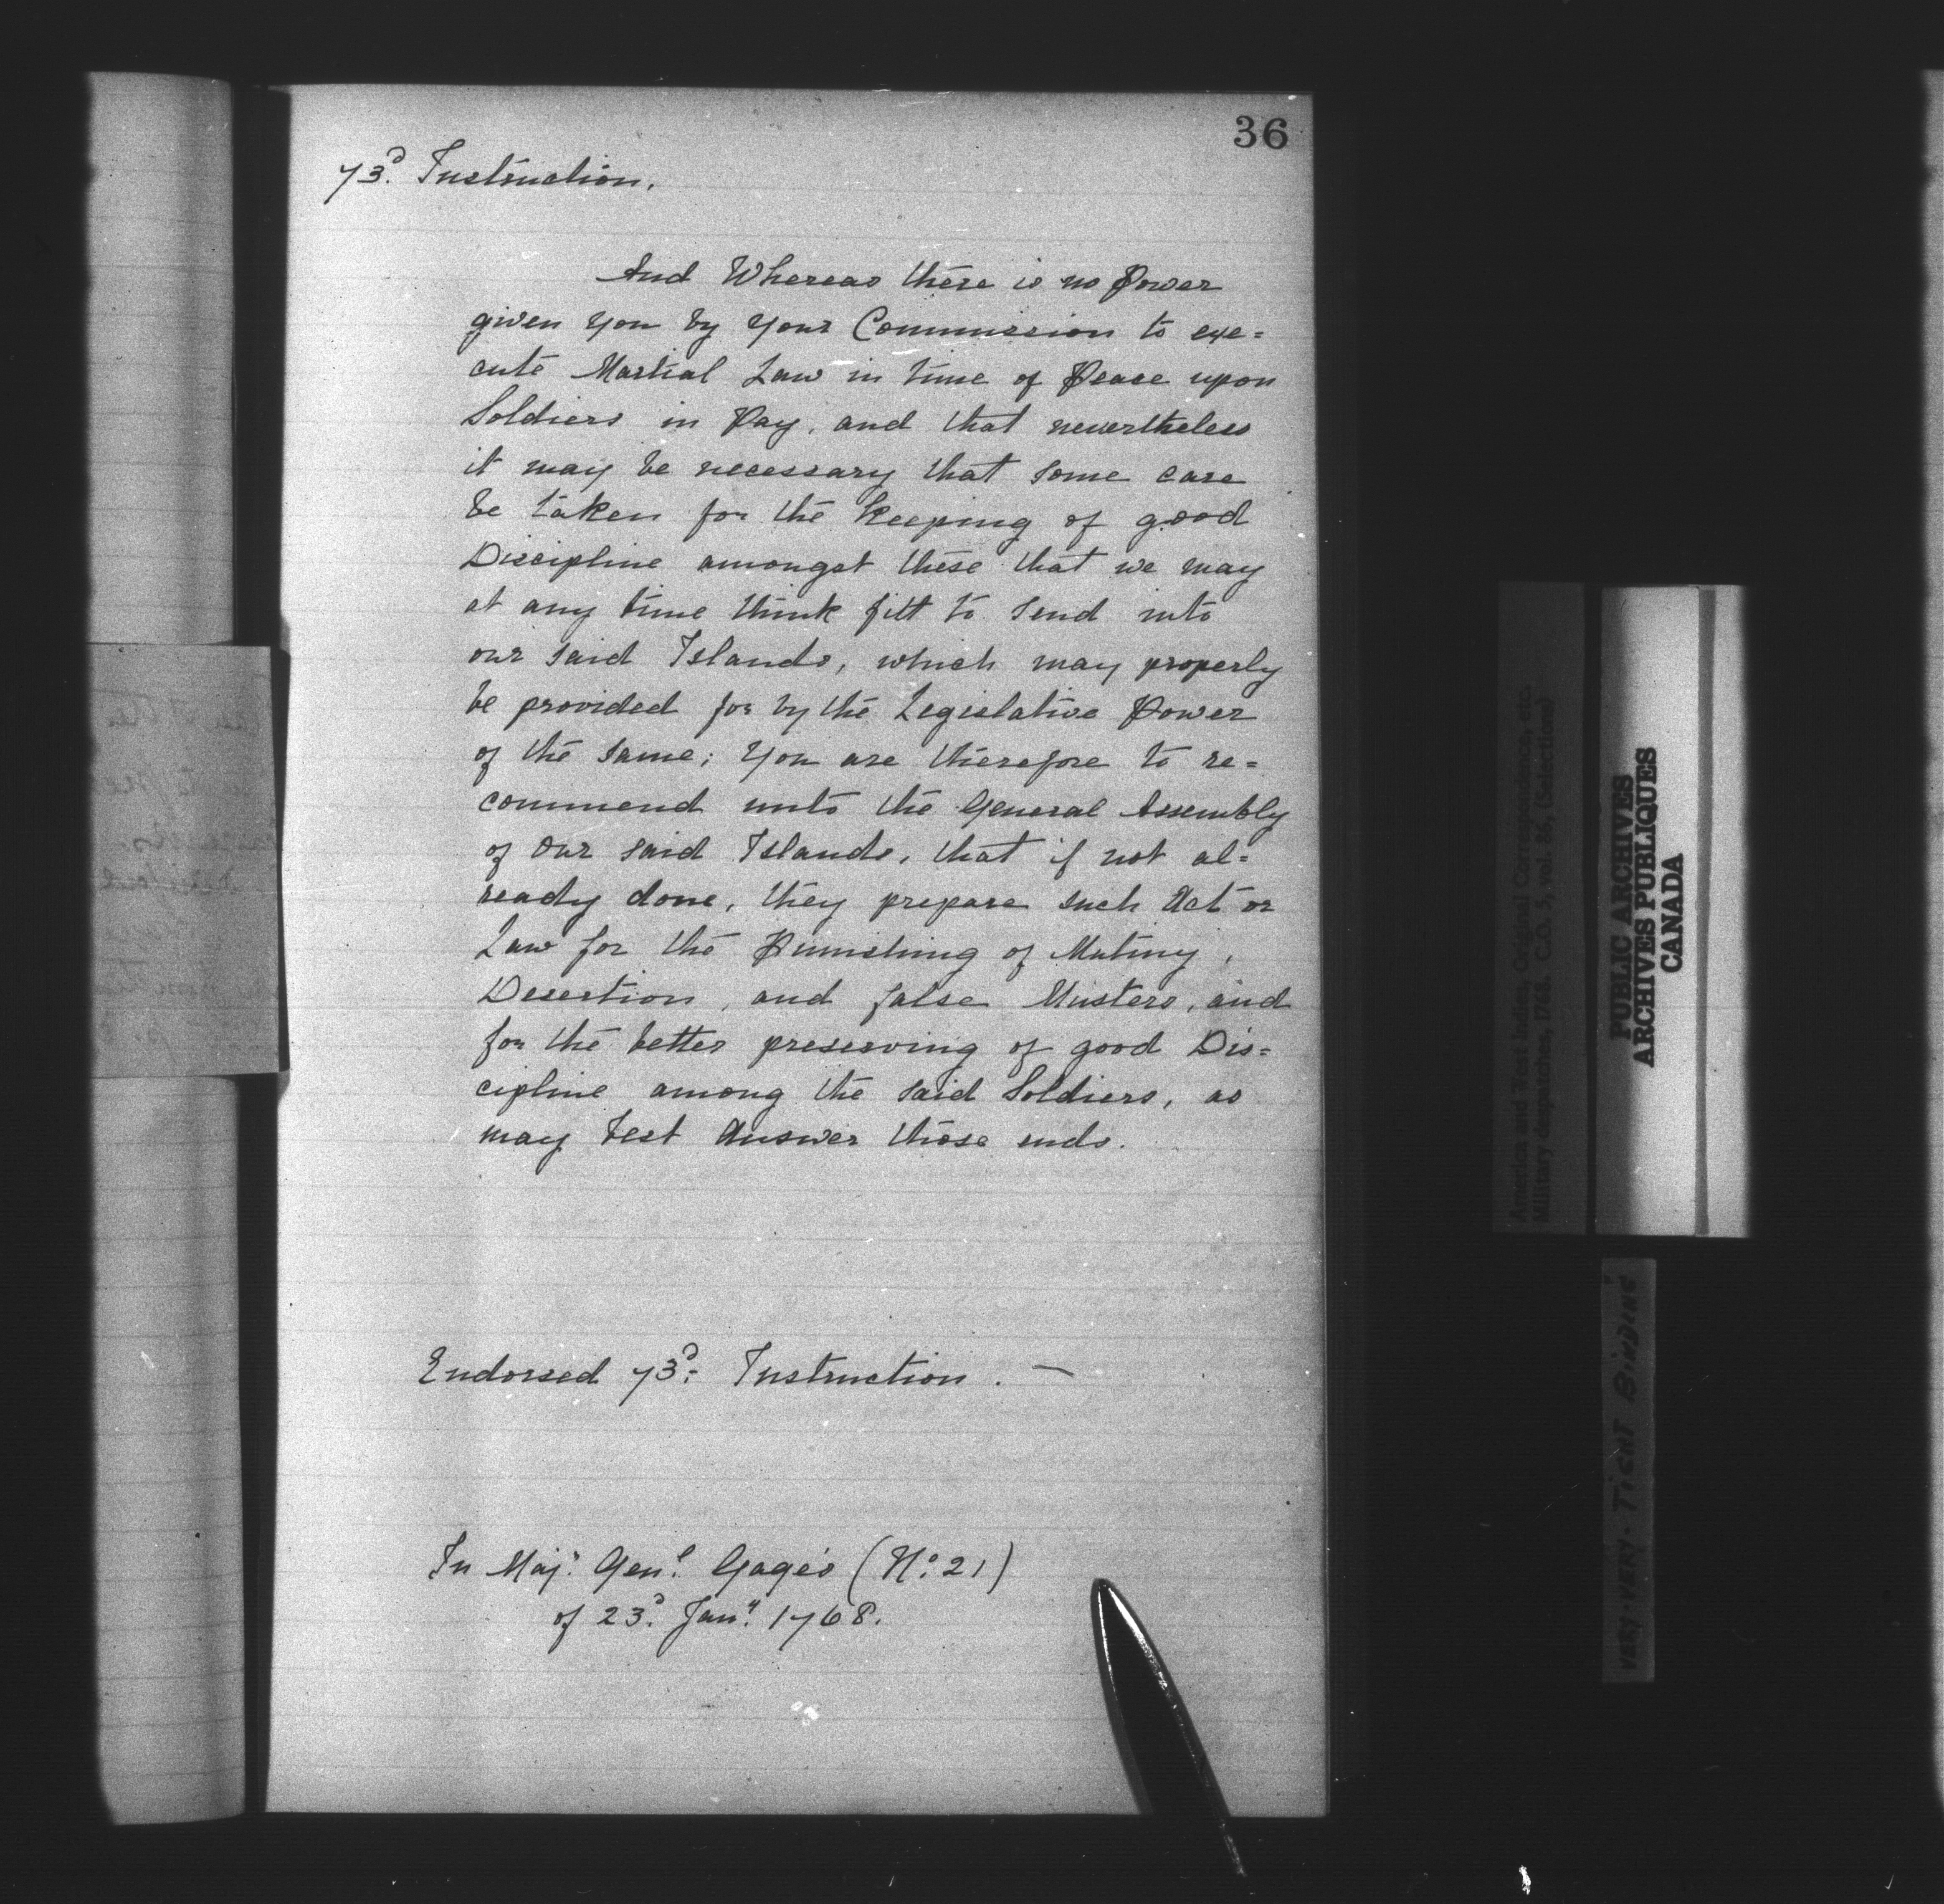 36
73.d Instruction.
And Whereas there is no Power
given you by your Commission to exe=
cute Martial Law in time of Peace upon
Soldiers in Pay, and that nevertheless
it may be necessary that some care
be taken for the keeping of good
Discipline amongst these that we may
at any time think fitt to send into
our said Islands, which may properly
be provided for by the Legislative Power
of the same; you are therefore to re=
commend unto the General Assembly
of our said Islands, that if not al=
ready done, they prepare such Act or
Law for the Punishing of Mutiny,
Desertion, and false Musters, and
for the better preserving of good Dis=
cipline among the said Soldiers, as
may best Answer those ends.
Endorsed 73.d Instruction. —
In Maj.r Gen.l Gage's (N.o 21)
of 23.d Jan.y 1768.
America and West Indies, Original Correspondence, etc.
Military despatches, 1768. C.O. 5, vol. 86, (Selections)
PUBLIC ARCHIVES
ARCHIVES PUBLIQUES
CANADA
VERY-VERY-TIGHT BINDING